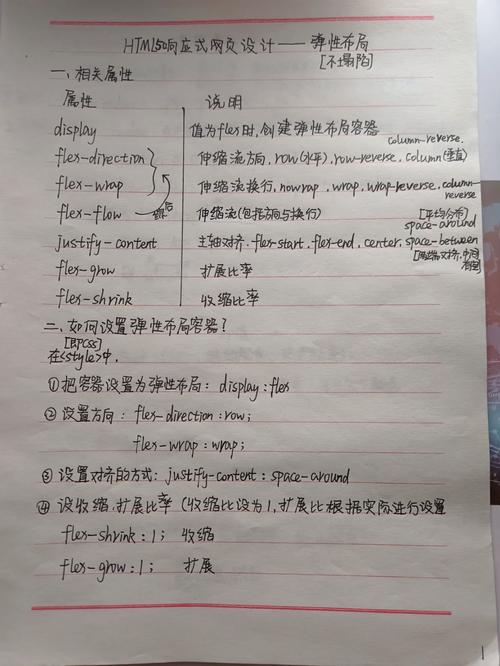 HTML5响应式网页设计——弹性布局
[不塌陷]
一、相关属性
属性 说明
display 值为flex时,创建弹性布局容器
column-reverse.
flex-direction 伸缩流方向,row(水平).row-reverse.column(垂直)
flex-wrap 伸缩流换行,nowrap.wrap.wrap-reverse.column-
reverse
flex-flow 伸缩流(包括方向与换行)
[平均分布]
space-around
justify-content 主轴对齐.flex-start.flex-end.center.space-between
[两端对齐,中间
flex-grow 扩展比率
flex-shrink 收缩比率
二、如何设置弹性布局容器?
[即css]
在<style>中,
①把容器设置为弹性布局:display:flex
②设置方向:flex-direction:row;
flex-wrap:wrap;
③设置对齐的方式:justify-content:space-around
④设收缩.扩展比率(收缩比设为1,扩展比根据实际进行设置
flex-shrink:1; 收缩
flex-grow:1; 扩展
1